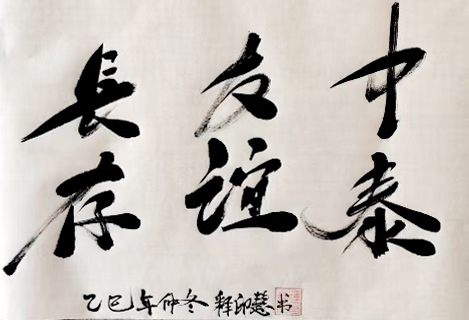 中泰
友谊
長存
乙巳年仲冬 释印慧书